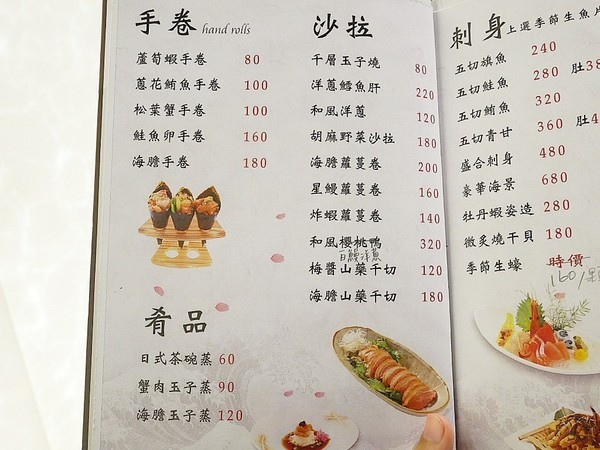 手卷 hand rolls
蘆筍蝦手卷 80
蔥花鮪魚手卷 100
松葉蟹手卷 100
鮭魚卵手卷 160
海膽手卷 180
肴品
日式茶碗蒸 60
蟹肉玉子蒸 90
海膽玉子蒸 120
沙拉
千層玉子燒 80
洋蔥鱈魚肝 220
和風洋蔥 120
胡麻野菜沙拉 180
海膽蘿蔓卷 200
星鰻蘿蔓卷 160
炸蝦蘿蔓卷 140
和風櫻桃鴨 320
梅醬山藥千切 120
海膽山藥千切 180
刺身 上選季節生魚片
五切旗魚 240
五切鮭魚 280 肚38
五切鮪魚 320
五切青甘 360 肚4
盛合刺身 480
豪華海景 680
牡丹蝦姿造 280
微炙燒干貝 180
季節生蠔 時價
160/